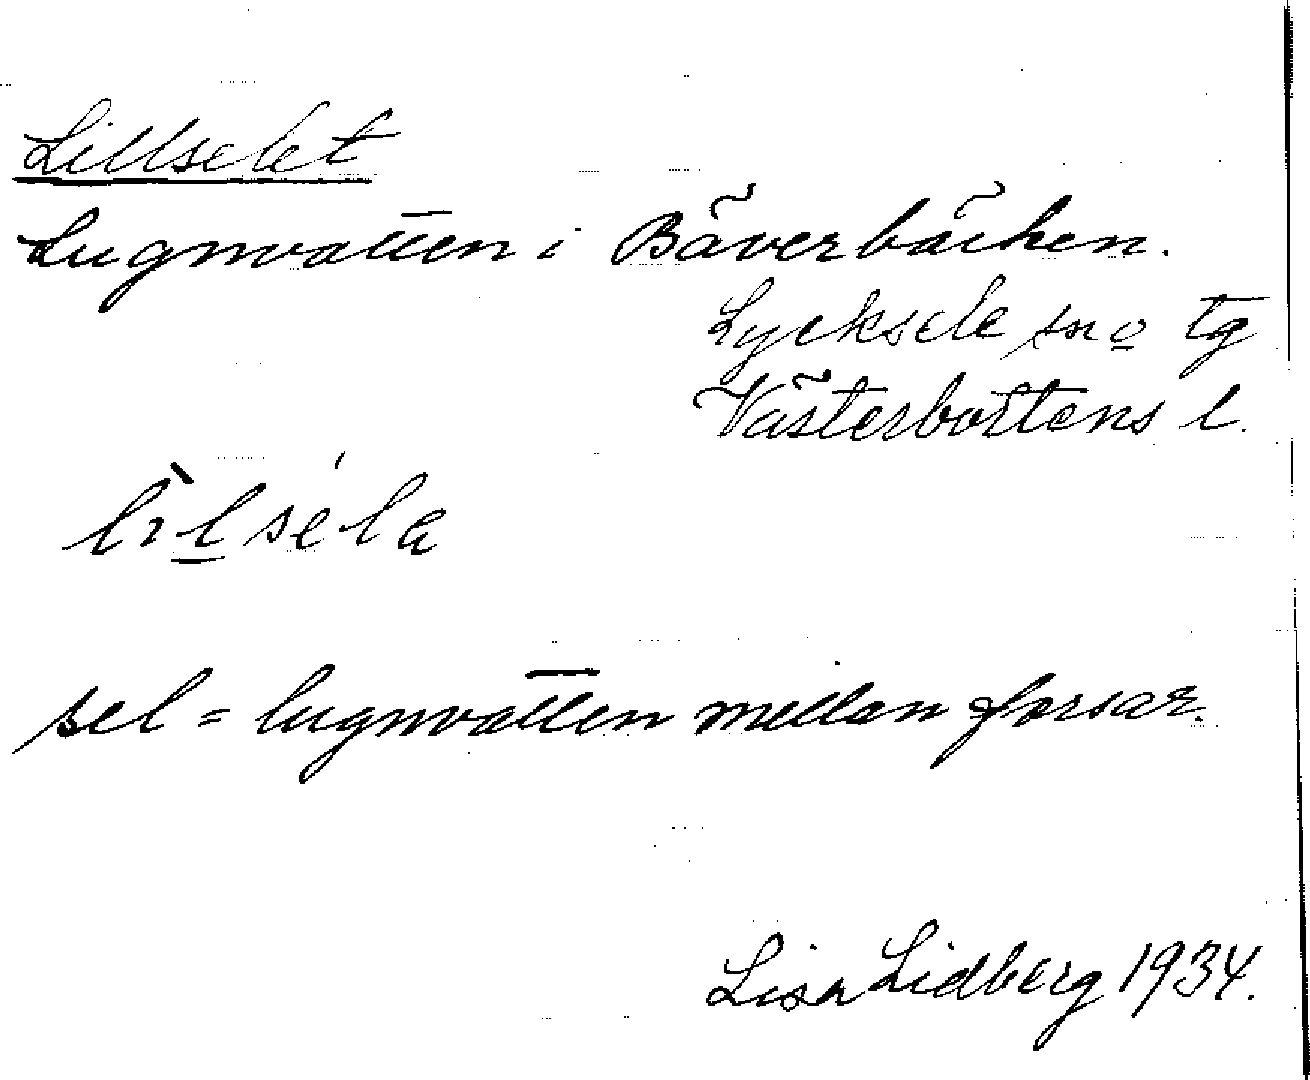 Lillselet
Lugnvatten i Bäverbäcken.
Lycksele sn o tg
Västerbottens l.
lìlséla
sel = lugnvatten mellan forsar.
Lisa Lidberg 1934.